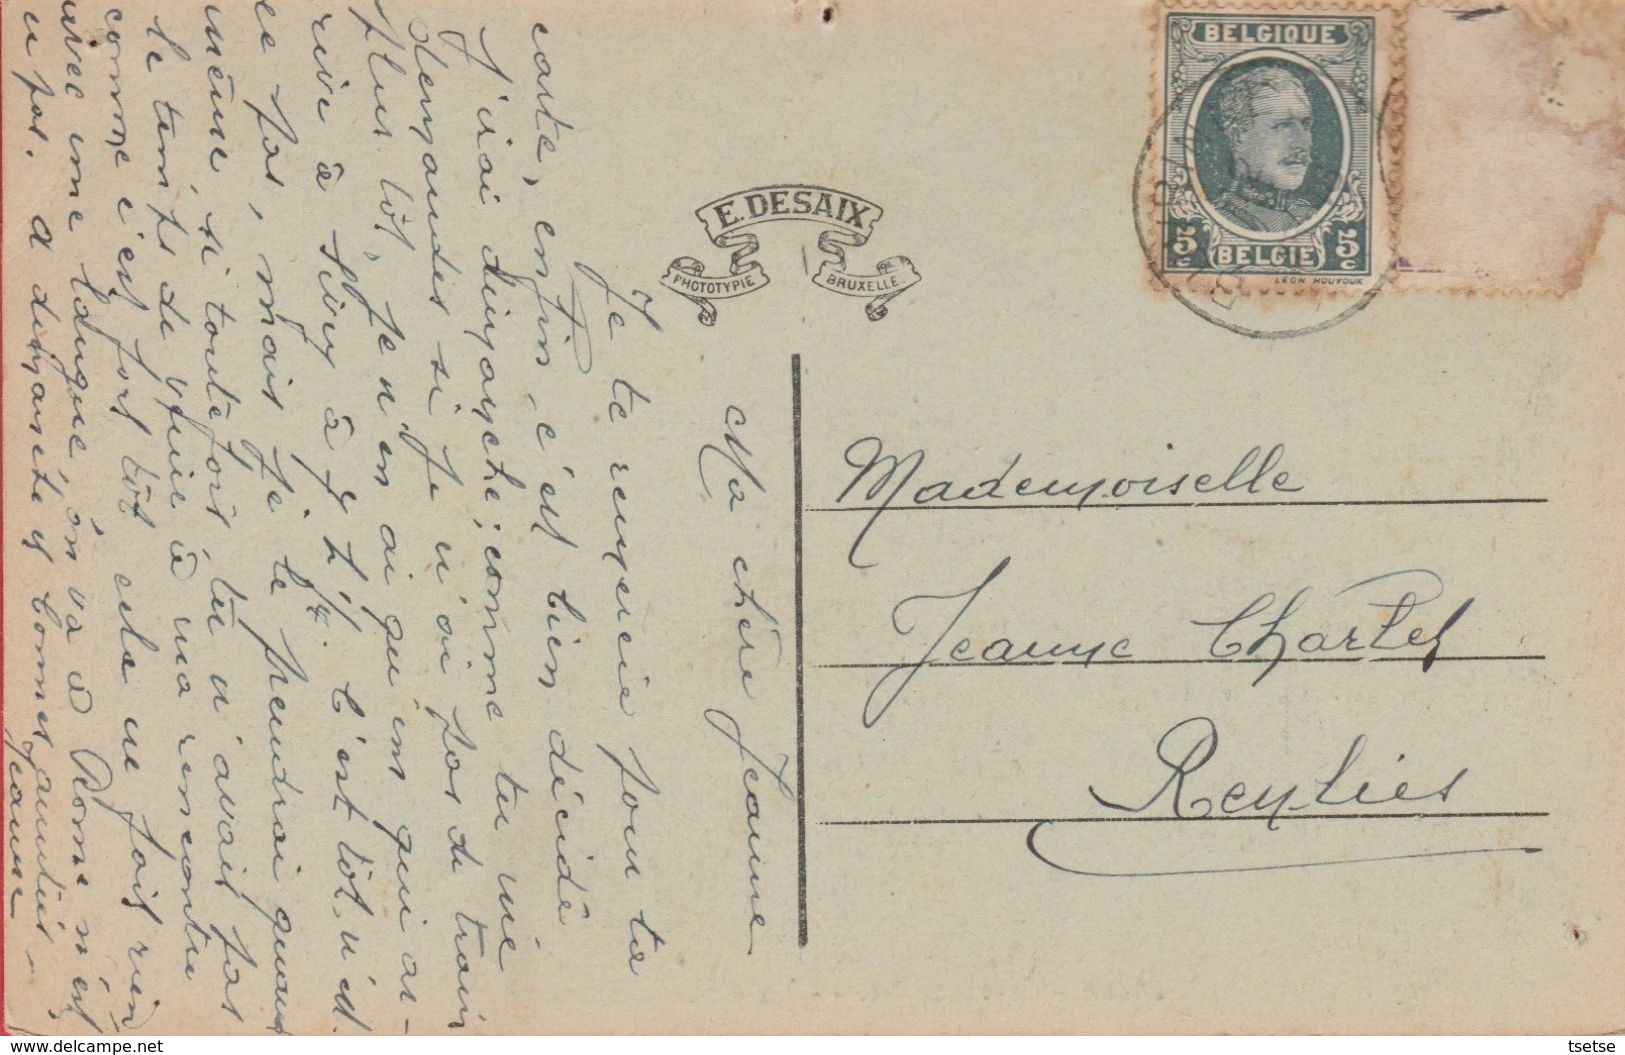 BELGIQUE
5 c 5 c
BELGIË
LÉON HOUYOUX
E. DESAIX
PHOTOTYPIE BRUXELLE
Mademoiselle
Jeanne Charles
Ma chère Jeanne
Je te remercie pour ta
carte, enfin c'est bien décidé
J'irai dimanche; comme tu me
demandes si je n'ai pas de train
plus tôt, je n'en ai qu'un qui ar-
rive à à 7 h. c'est tôt n'est
ce pas, mais je le prendrai quand
même, si toutefois tu n'avais pas
le temps de venir à ma rencontre
comme c'est fort tôt cela ne fait rien
avec une langue on va à Rome n'est
ce pas. A dimanche et bonnes amitiés.
Jeanne
tsetse www.delcampe.net